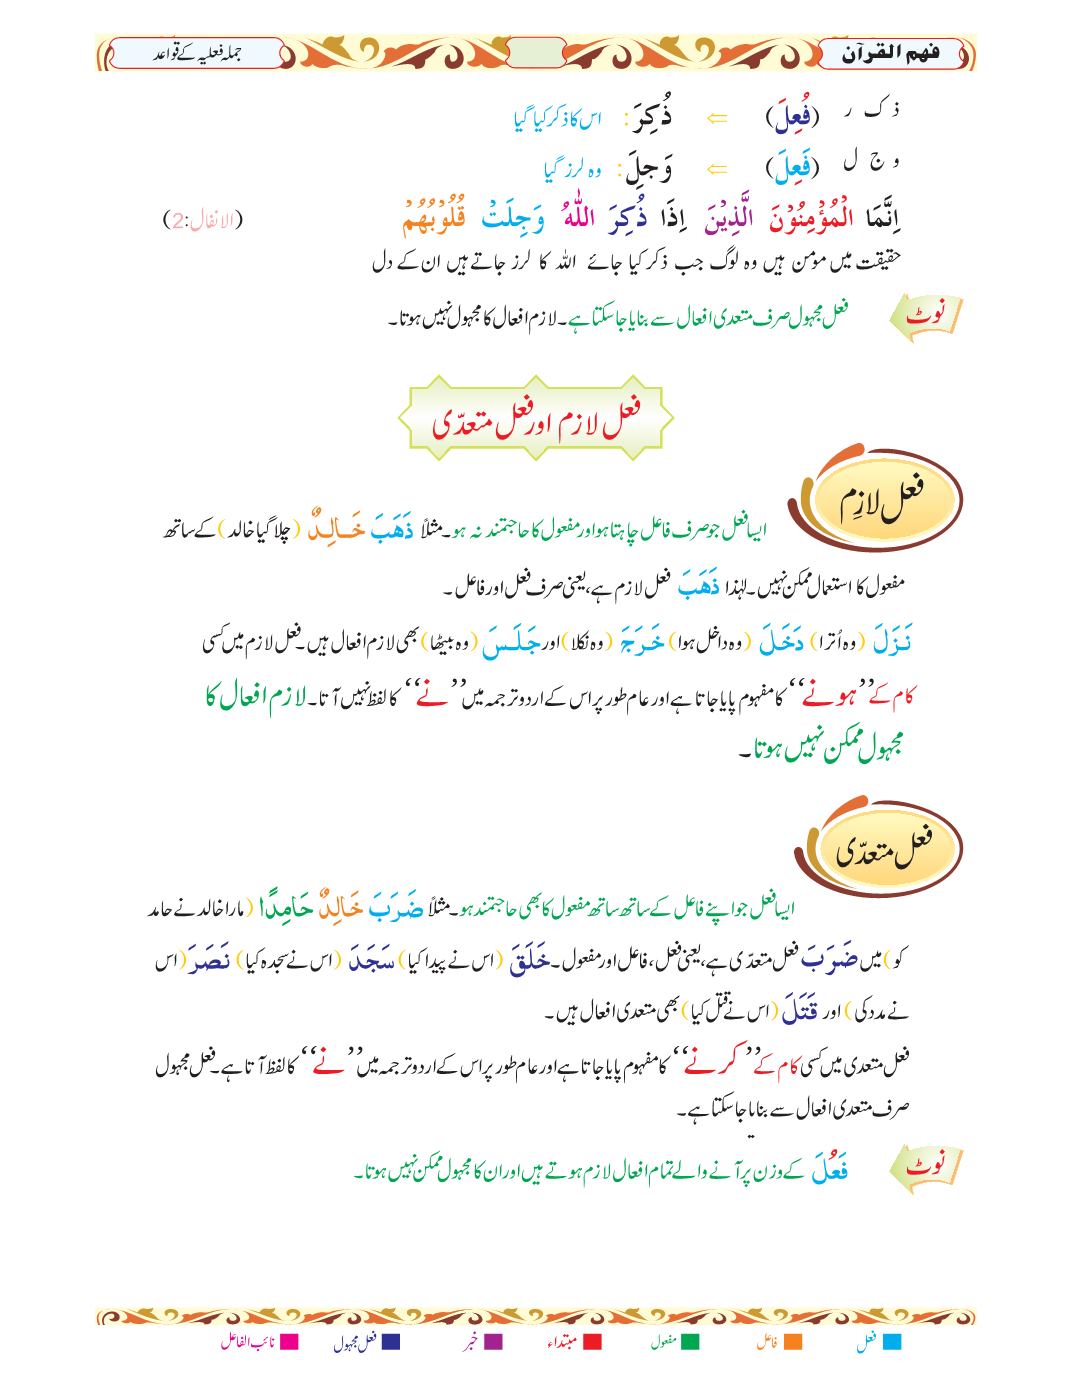 فہم القرآن
جملہ فعلیہ کے قواعد
ذ ک ر (فُعِلَ) ⇐ ذُکِرَ : اس کا ذکر کیا گیا
و ج ل (فَعِلَ) ⇐ وَجِلَ : وہ لرز گیا
اِنَّمَا الْمُؤْمِنُوْنَ الَّذِیْنَ اِذَا ذُکِرَ اللّٰهُ وَجِلَتْ قُلُوْبُهُمْ (الانفال:2)
حقیقت میں مومن ہیں وہ لوگ جب ذکر کیا جائے اللہ کا لرز جاتے ہیں ان کے دل
نوٹ
فعل مجہول صرف متعدی افعال سے بنایا جا سکتا ہے۔ لازم افعال کا مجہول نہیں ہوتا۔
فعل لازم اور فعل متعدّی
فعل لازِم
ایسا فعل جو صرف فاعل چاہتا ہو اور مفعول کا حاجتمند نہ ہو۔ مثلاً ذَهَبَ خَالِدٌ (چلا گیا خالد) کے ساتھ
مفعول کا استعمال ممکن نہیں۔ لہٰذا ذَهَبَ فعل لازم ہے، یعنی صرف فعل اور فاعل۔
نَزَلَ (وہ اُترا) دَخَلَ (وہ داخل ہوا) خَرَجَ (وہ نکلا) اور جَلَسَ (وہ بیٹھا) بھی لازم افعال ہیں۔ فعل لازم میں کسی
کام کے ’’ہونے‘‘ کا مفہوم پایا جاتا ہے اور عام طور پر اس کے اردو ترجمہ میں ’’نے‘‘ کا لفظ نہیں آتا۔ لازم افعال کا
مجہول ممکن نہیں ہوتا۔
فعل متعدّی
ایسا فعل جو اپنے فاعل کے ساتھ ساتھ مفعول کا بھی حاجتمند ہو۔ مثلاً ضَرَبَ خَالِدٌ حَامِدًا (مارا خالد نے حامد
کو) میں ضَرَبَ فعل متعدّی ہے، یعنی فعل، فاعل اور مفعول۔ خَلَقَ (اس نے پیدا کیا) سَجَدَ (اس نے سجدہ کیا) نَصَرَ (اس
نے مدد کی) اور قَتَلَ (اس نے قتل کیا) بھی متعدی افعال ہیں۔
فعل متعدی میں کسی کام کے ’’کرنے‘‘ کا مفہوم پایا جاتا ہے اور عام طور پر اس کے اردو ترجمہ میں ’’نے‘‘ کا لفظ آتا ہے۔ فعل مجہول
صرف متعدی افعال سے بنایا جا سکتا ہے۔
نوٹ
فَعُلَ کے وزن پر آنے والے تمام افعال لازم ہوتے ہیں اور ان کا مجہول ممکن نہیں ہوتا۔
فعل فاعل مفعول مبتداء خبر فعل مجہول نائب الفاعل